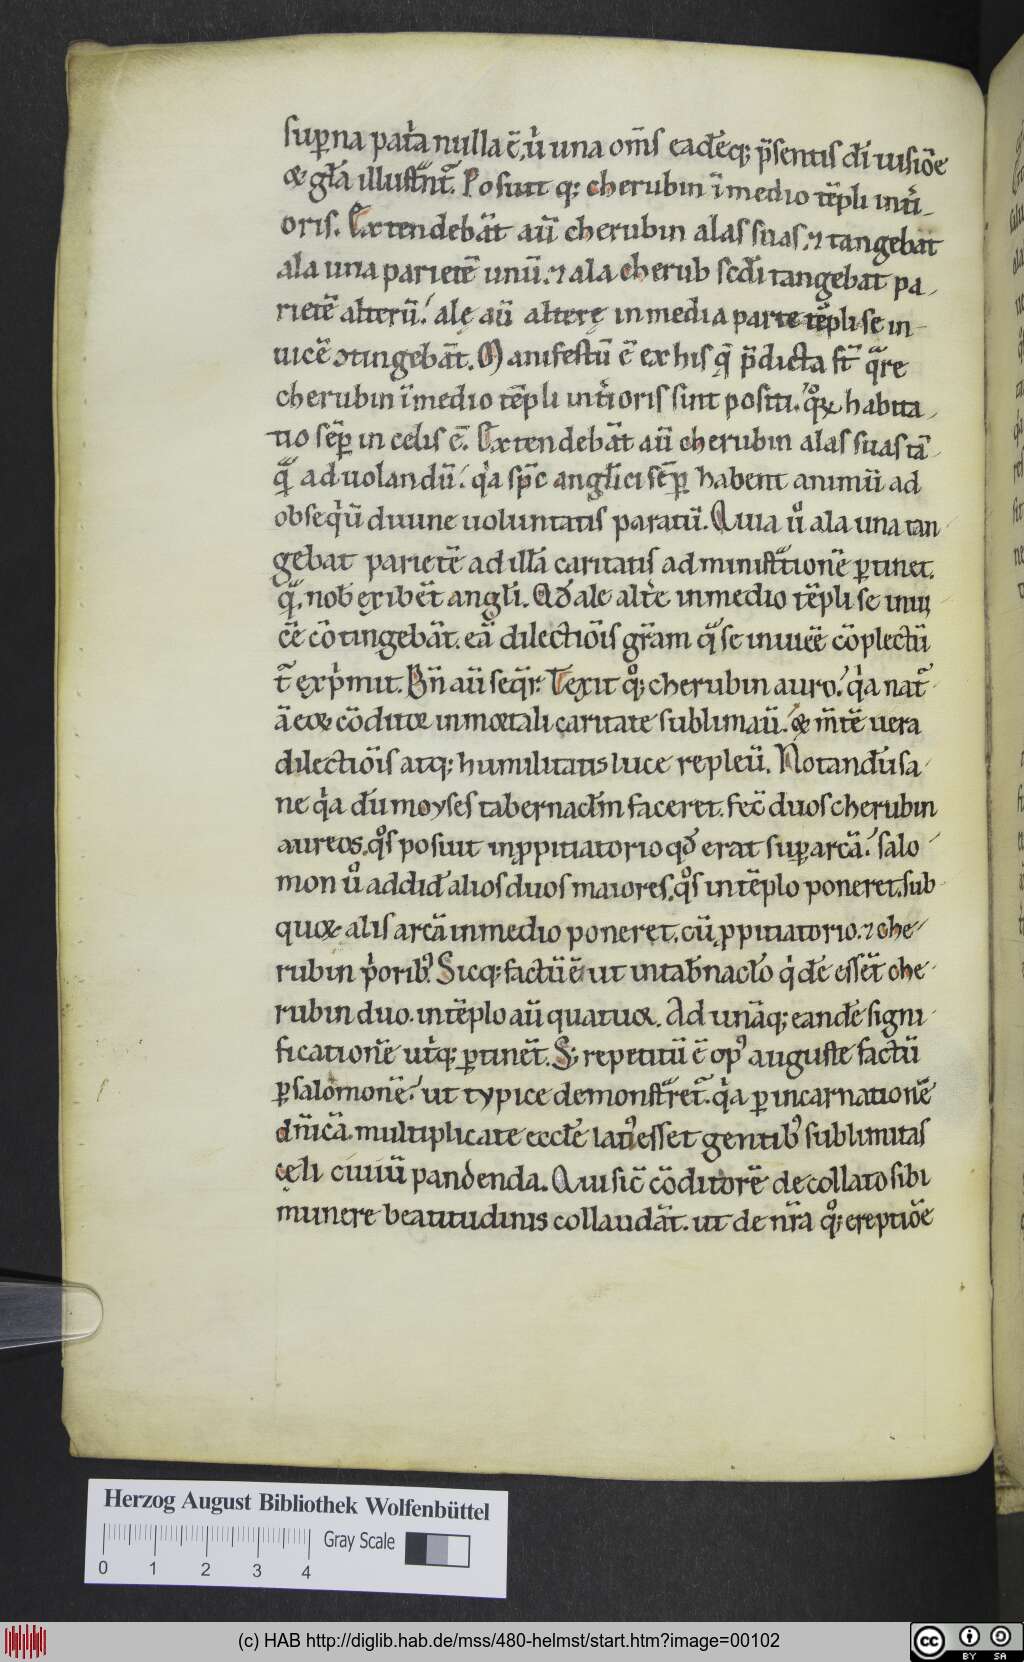 sup̲na pat̾a nulla ē, u̾ una om̅s eadēq; p̄sentis di̅ uisiōe
& gl̅a illust̾nt̅. Posuit q; cherubin ī medio tēpli int̾i
oris. Extendebāt aū cherubin alas suas, ⁊ tangebat
ala una parietē unū. ⁊ ala cherub scd̅i tangebat pa
rietē alterū. alę aū alterę in media parte tēpli se in
uicē ꝯtingebāt. Manifestū ē ex his q̄ p̄dicta st̅ q̾re
cherubin ī medio tēpli int̾ioris sint positi. q̊ꝝ habita
tio sēꝑ in celis ē. Extendebāt aū cherubin alas suas tā
q̄ ad uolandū. q̾a sp̄c angl̅ici sēꝑ habent animū ad
obseq̾ū diuine uoluntatis paratū. Quia u̾o ala una tan
gebat parietē ad illā caritatis administ̾tionē ꝑtinet.
q̄. nob̅ exibēt angl̅i. Qđ ale alt̾e in medio tēpli se inui
cē cōtingebāt. eā dilectiōis gr̅am q̄ se inuicē cōplectū
t̅ exp̾mit. Bn̅ aū seq̄r. Texit q̊; cherubin auro. q̾a nat̅
ā eoꝝ cōditoꝛ inmortali caritate sublimaū. & m̅tē uera
dilectiōis atq; humilitatis luce repleū. Notand̅ sa
ne q̾a dū moyses tabernacl̅m faceret. fec̅ duos cherubin
aureos. q̊s posuit in ꝓpitiatorio qđ erat suꝑ arcā. salo
mon u̾o addid̅ alios duos maiores. q̊s in tēplo poneret. sub
quoꝝ alis arcā in medio poneret. cū ꝓpitiatorio. ⁊ che
rubin p̾orib;. Sicq; factū ē ut in tab̅nacl̅o q̾dē essēt che
rubin duo. in tēplo aū quatuoꝛ. Ad unāq; eandē signi
ficationē ut̾q; ꝑtinēt. S; repetitū ē op; auguste factū
ꝑ salomonē. ut typice demonst̾ret̅. q̾a ꝑ incarnationē
dn̅icā. multiplicate eccl̅e lati; esset gentib; sublimitas
cęli ciuiū pandenda. Qui sic̅ cōditorē de collato sibi
munere beatitudinis collaudāt. ut de nr̅a q̊; ereptiōe
Herzog August Bibliothek Wolfenbüttel
Gray Scale
0 1 2 3 4
(c) HAB http://diglib.hab.de/mss/480-helmst/start.htm?image=00102
cc BY SA